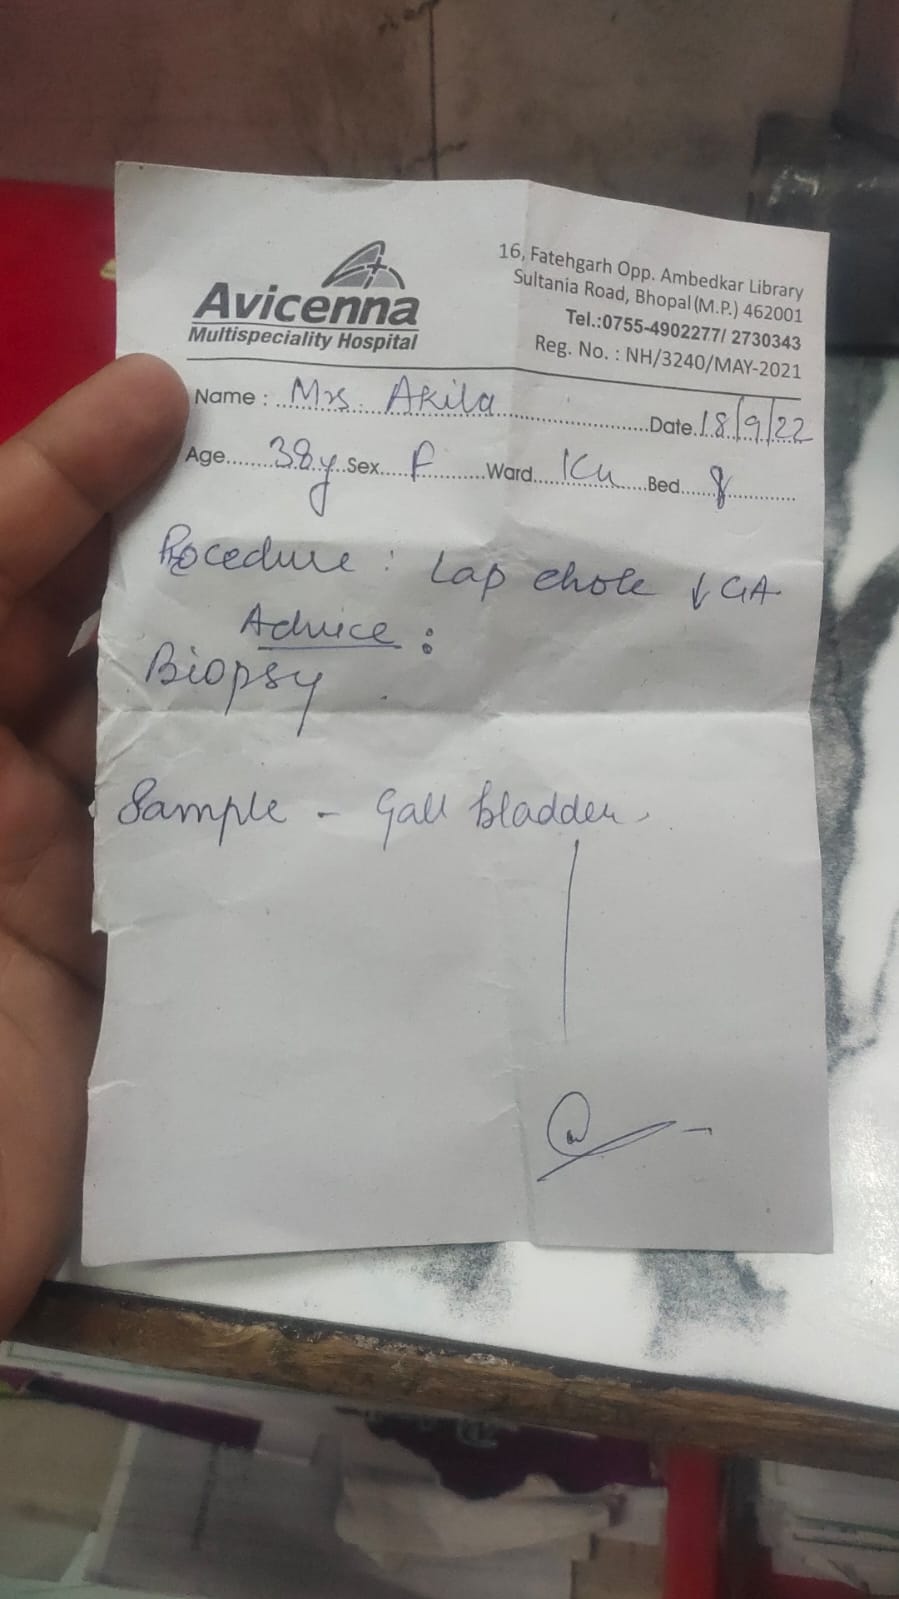 Avicenna
Multispeciality Hospital
16, Fatehgarh Opp. Ambedkar Library
Sultania Road, Bhopal (M.P.) 462001
Tel.:0755-4902277/ 2730343
Reg. No. : NH/3240/MAY-2021
Name : Mrs. Akila Date 18/9/22
Age 38y Sex F Ward ICU Bed 8
Procedure : Lap chole ↓ GA
Advice :
Biopsy
Sample - Gall bladder